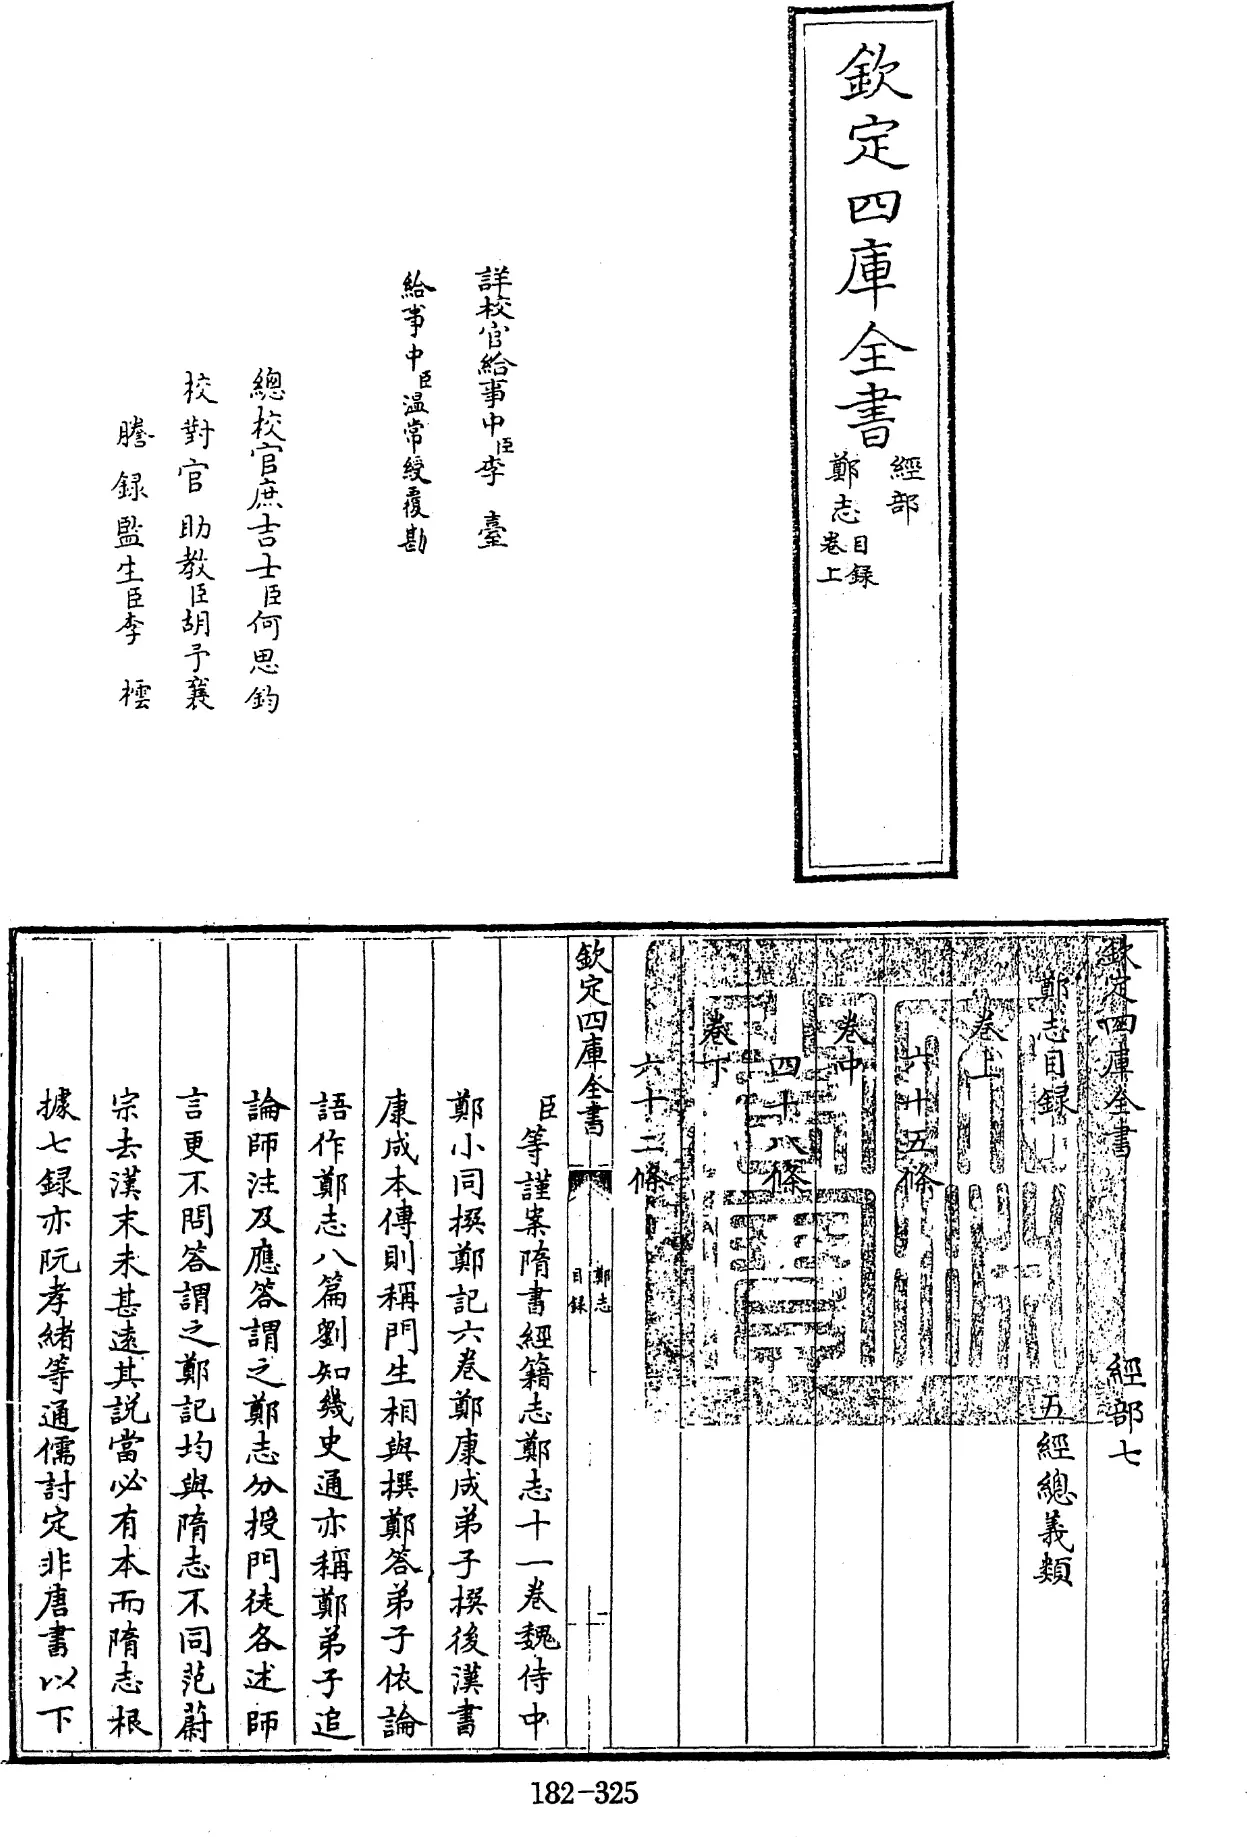 欽定四庫全書
經部
鄭志
目録
卷上
詳校官給事中臣李臺
給事中臣温常綬覆勘
總校官庶吉士臣何思鈞
校對官助教臣胡予襄
謄録監生臣李橒
欽定四庫全書 經部七
鄭志目録 五經總義類
卷上
六十五條
卷中
四十八條
卷下
六十二條
欽定四庫全書
鄭志
目録
一
臣等謹案隋書經籍志鄭志十一卷魏侍中
鄭小同撰鄭記六卷鄭康成弟子撰後漢書
康成本傳則稱門生相與撰鄭答弟子依論
語作鄭志八篇劉知幾史通亦稱鄭弟子追
論師注及應答謂之鄭志分授門徒各述師
言更不問答謂之鄭記均與隋志不同范蔚
宗去漢末未甚遠其説當必有本而隋志根
據七録亦阮孝緒等通儒討定非唐書以下
182-325